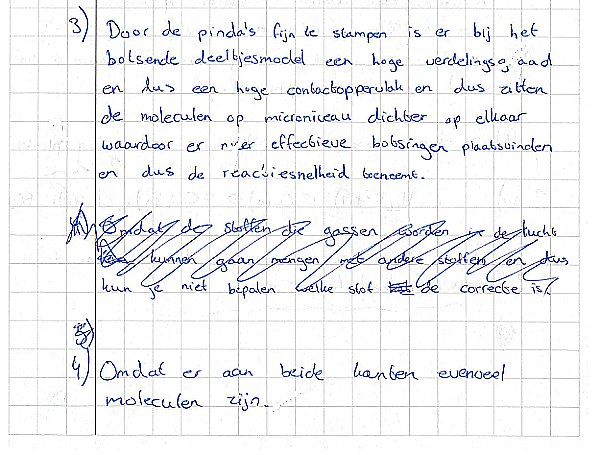 3) Door de pinda's fijn te stampen is er bij het
botsende deeltjesmodel een hoge verdelingsgraad
en dus een hoge contactoppervlak en dus zitten
de moleculen op microniveau dichter op elkaar
waardoor er meer effectieve botsingen plaatsvinden
en dus de reactiesnelheid toeneemt.
Omdat de stoffen die gassen worden in de lucht
kunnen gaan mengen met andere stoffen en dus
kun je niet bepalen welke stof de correcte is.
4) Omdat er aan beide kanten evenveel
moleculen zijn.